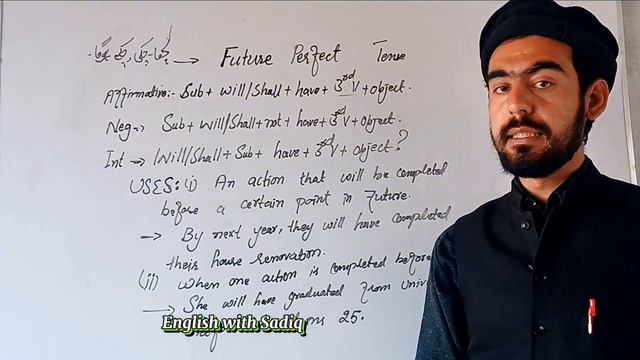 چکا، چکی، چکے ہوگا۔ → Future Perfect Tense
Affirmative:- Sub + will/shall + have + 3rd V + object.
Neg => Sub + will/shall + not + have + 3rd V + object.
Int → Will/Shall + Sub + have + 3rd V + object?
USES: (i) An action that will be completed
before a certain point in Future.
→ By next year, they will have completed
their house renovation.
(ii) when one action is completed before
→ She will have graduated from Univ
25.
English with Sadiq